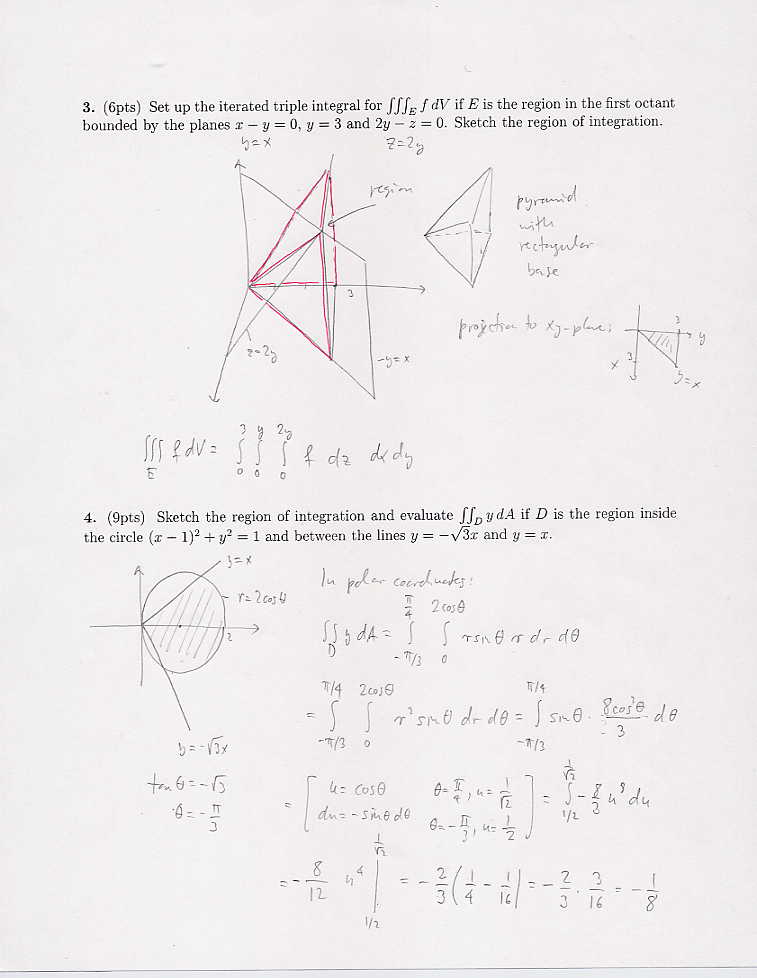 3. (6pts) Set up the iterated triple integral for ∭_E f dV if E is the region in the first octant
bounded by the planes x − y = 0, y = 3 and 2y − z = 0. Sketch the region of integration.
y=x
z=2y
region
pyramid
with
rectangular
base
3
z=2y
y=x
projection to xy-plane:
3
y
x
3
y=x
∭_E f dV = ∫_0^3 ∫_0^y ∫_0^{2y} f dz dx dy
4. (9pts) Sketch the region of integration and evaluate ∬_D y dA if D is the region inside
the circle (x − 1)² + y² = 1 and between the lines y = −√3x and y = x.
y=x
r=2cosθ
2
y=-√3x
tanθ=-√3
θ=-π/3
In polar coordinates:
∬_D y dA = ∫_{-π/3}^{π/4} ∫_0^{2cosθ} r sinθ r dr dθ
= ∫_{-π/3}^{π/4} ∫_0^{2cosθ} r² sinθ dr dθ = ∫_{-π/3}^{π/4} sinθ · 8cos³θ/3 dθ
= [ u=cosθ θ=π/4, u=1/√2
du=-sinθdθ θ=-π/3, u=1/2 ] = ∫_{1/2}^{1/√2} -8/3 u³ du
= -8/12 u⁴ |_{1/2}^{1/√2} = -2/3 (1/4 - 1/16) = -2/3 · 3/16 = -1/8